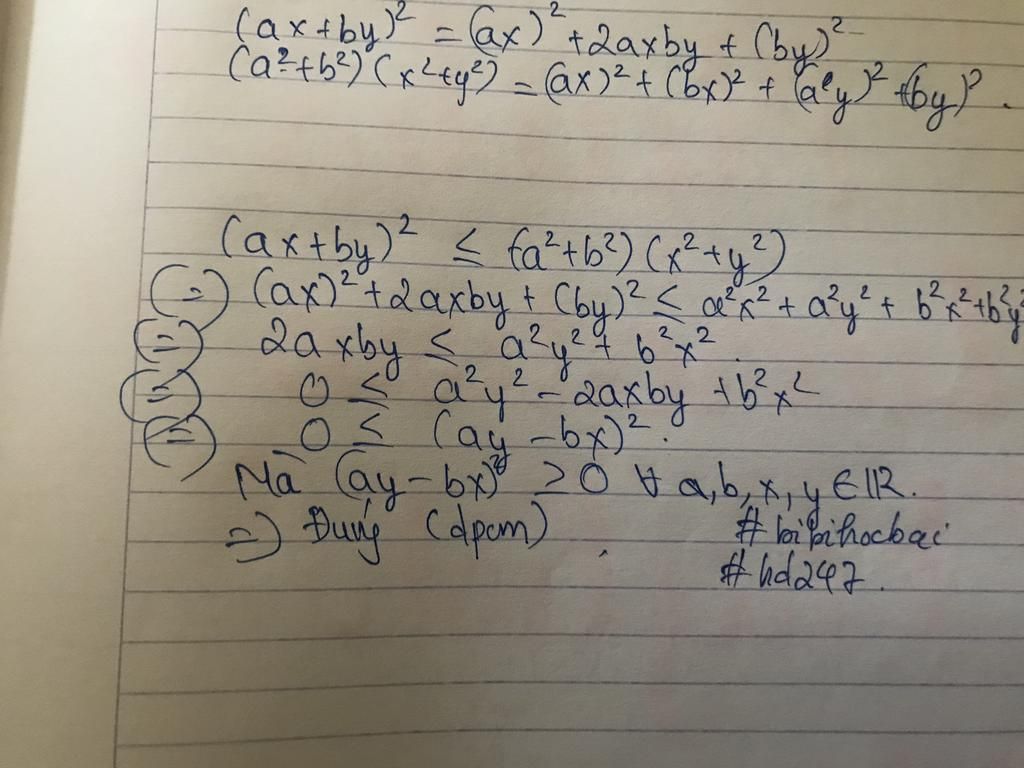 (ax+by)² = (ax)² + 2axby + (by)²
(a²+b²)(x²+y²) = (ax)² + (bx)² + (ay)² + (by)².
(ax+by)² ≤ (a²+b²)(x²+y²)
(=) (ax)² + 2axby + (by)² ≤ a²x² + a²y² + b²x² + b²y²
(=) 2axby ≤ a²y² + b²x².
(=) 0 ≤ a²y² - 2axby + b²x²
(=) 0 ≤ (ay - bx)².
Mà (ay - bx)² ≥ 0 ∀ a, b, x, y ∈ IR.
=) Đúng (dpcm)
# bibihocbai
# hd247.